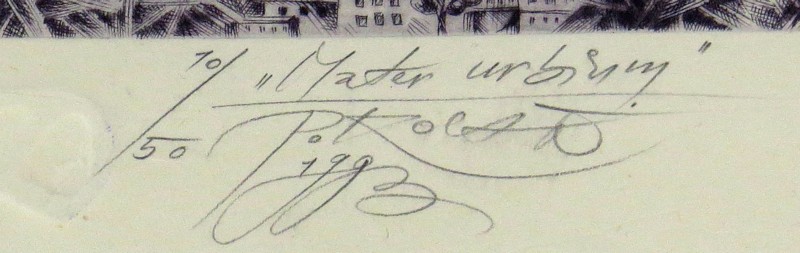 10/50 „Mater urbium”
1993